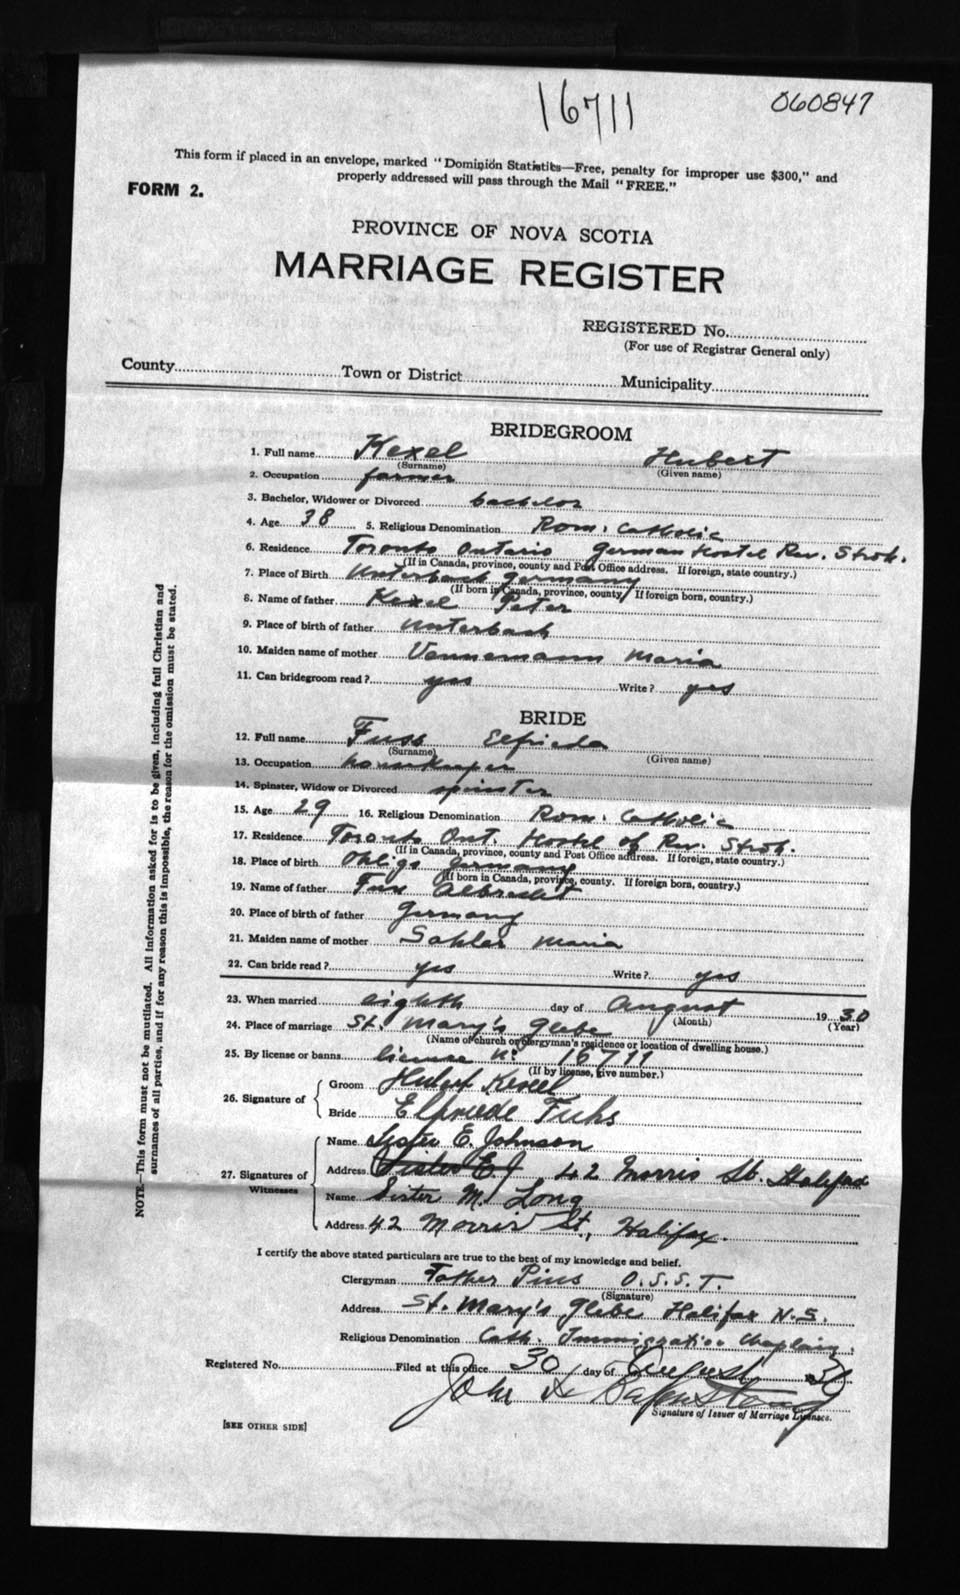 16711
060847
This form if placed in an envelope, marked "Dominion Statistics—Free, penalty for improper use $300," and
properly addressed will pass through the Mail "FREE."
FORM 2.
PROVINCE OF NOVA SCOTIA
MARRIAGE REGISTER
REGISTERED No.
(For use of Registrar General only)
County Town or District Municipality
BRIDEGROOM
1. Full name Kexel Hubert
(Surname) (Given name)
2. Occupation farmer
3. Bachelor, Widower or Divorced bachelor
4. Age 38 5. Religious Denomination Rom. Catholic
6. Residence Toronto Ontario German Hostel Rev. Stroh.
(If in Canada, province, county and Post Office address. If foreign, state country.)
7. Place of Birth Unterbach Germany
(If born in Canada, province, county. If foreign born, country.)
8. Name of father Kexel Peter
9. Place of birth of father Unterbach
10. Maiden name of mother Vennemann Maria
11. Can bridegroom read? yes Write? yes
BRIDE
12. Full name Fuss Elfrieda
(Surname) (Given name)
13. Occupation housekeeper
14. Spinster, Widow or Divorced spinster
15. Age 29 16. Religious Denomination Rom. Catholic
17. Residence Toronto Ont. Hostel of Rev. Stroh.
(If in Canada, province, county and Post Office address. If foreign, state country.)
18. Place of birth Ohligs Germany
(If born in Canada, province, county. If foreign born, country.)
19. Name of father Albrecht
20. Place of birth of father Germany
21. Maiden name of mother Maria
22. Can bride read? yes Write? yes
23. When married eighth day of August 1930
(Month) (Year)
24. Place of marriage St. Mary's Glebe
(Name of church or clergyman's residence or location of dwelling house.)
25. By license or banns license No 16711
(If by license, give number.)
26. Signature of Groom Hubert Kexel
Bride Elfriede Fuhs
27. Signatures of Witnesses
Name Sister E. Johnson
Address Sister E J 42 Morris St. Halifax
Name Sister M. Long
Address 42 Morris St., Halifax.
I certify the above stated particulars are true to the best of my knowledge and belief.
Clergyman Father Pius O.S.S.T.
(Signature)
Address St. Mary's Glebe Halifax N.S.
Religious Denomination Cath. Immigration Chaplain.
Registered No. Filed at this office 30 day of August 30
John
Signature of Issuer of Marriage Licenses.
[SEE OTHER SIDE]
NOTE.—This form must not be mutilated. All information asked for is to be given, including full Christian and
surnames of all parties, and if for any reason this is impossible, the reason for the omission must be stated.